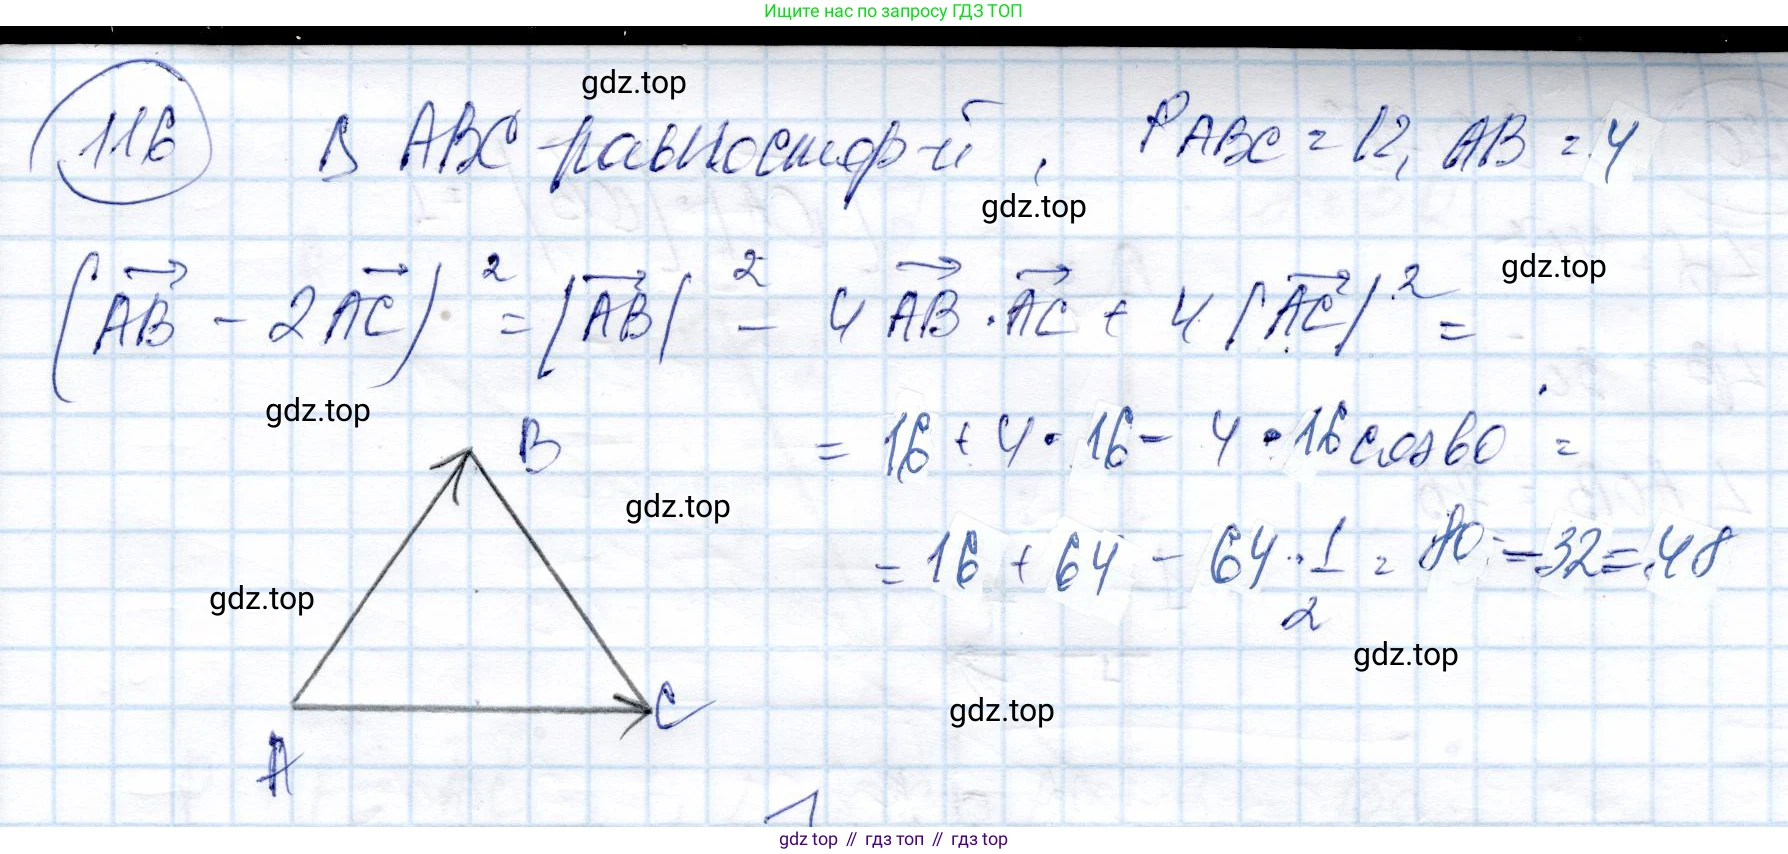 Ищите нас по запросу ГДЗ ТОП
gdz.top
116 В ABC равностор-й, P ABC = 12, AB = 4
gdz.top
gdz.top
(AB - 2AC)² = |AB|² - 4 AB · AC + 4 |AC|² =
gdz.top
B = 16 + 4 · 16 - 4 · 16 cos 60° =
gdz.top
= 16 + 64 - 64 · 1/2 = 80 - 32 = 48
gdz.top
gdz.top
C gdz.top
A
gdz.top // гдз топ // гдз top